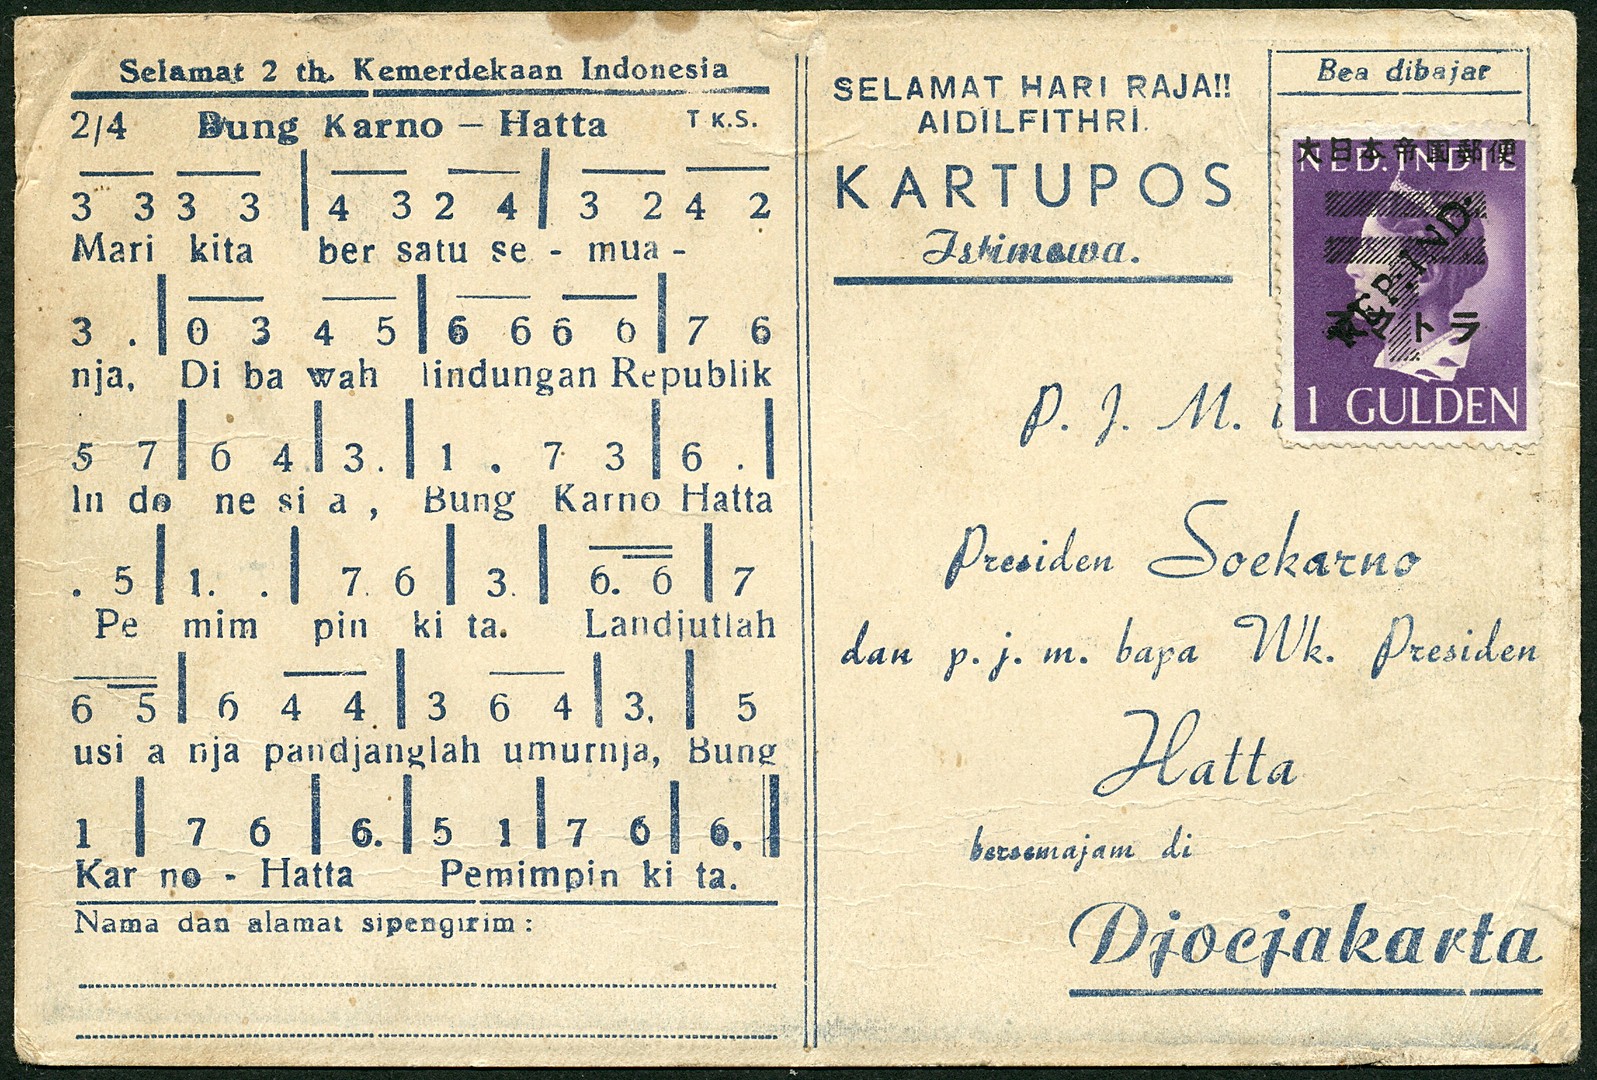 Selamat 2 th. Kemerdekaan Indonesia
2/4 Bung Karno – Hatta T K.S.
3 3 3 3 | 4 3 2 4 | 3 2 4 2
Mari kita ber satu se - mua -
3 . | 0 3 4 5 | 6 6 6 6 | 7 6
nja, Di ba wah lindungan Republik
5 7 | 6 4 | 3 . | 1 . 7 3 | 6 . |
In do ne si a , Bung Karno Hatta
. 5 | 1 . . | 7 6 | 3. | 6. 6 | 7
Pe mim pin ki ta. Landjutlah
6 5 | 6 4 4 | 3 6 4 | 3. | 5
usi a nja pandjanglah umurnja, Bung
1 | 7 6 | 6. | 5 1 | 7 6 | 6. ||
Kar no - Hatta Pemimpin ki ta.
Nama dan alamat sipengirim :
SELAMAT HARI RAJA!!
AIDILFITHRI.
KARTUPOS
Istimewa.
Bea dibajar
大日本帝国郵便
NED. INDIE
REP. IND.
トラ
1 GULDEN
P. J. M.
Presiden Soekarno
dan p. j. m. bapa Wk. Presiden
Hatta
bersemajam di
Djocjakarta